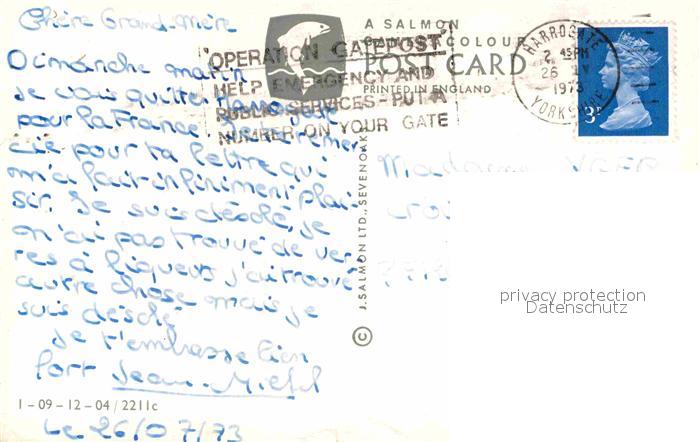 Chère Grand-Mère
Dimanche matin
je vais quitter
pour la France. remer
cie pour ta lettre qui
m'a fait infiniment plai-
sir. Je suis désolé, je
n'ai pas trouvé de ver
res à liqueur j'ai trouvé
autre chose mais je
suis désolé
je t'embrasse bien
fort Jean-Michel
1-09-12-04/2211c
Le 26/07/73
A SALMON
COLOUR
POST CARD
PRINTED IN ENGLAND
"OPERATION GATEPOST"
HELP EMERGENCY AND
PUBLIC SERVICES-PUT A
NUMBER ON YOUR GATE
HARROGATE
2 45PM
26
1973
YORKSHIRE
3P
© J. SALMON LTD., SEVENOAK
Madame
privacy protection
Datenschutz